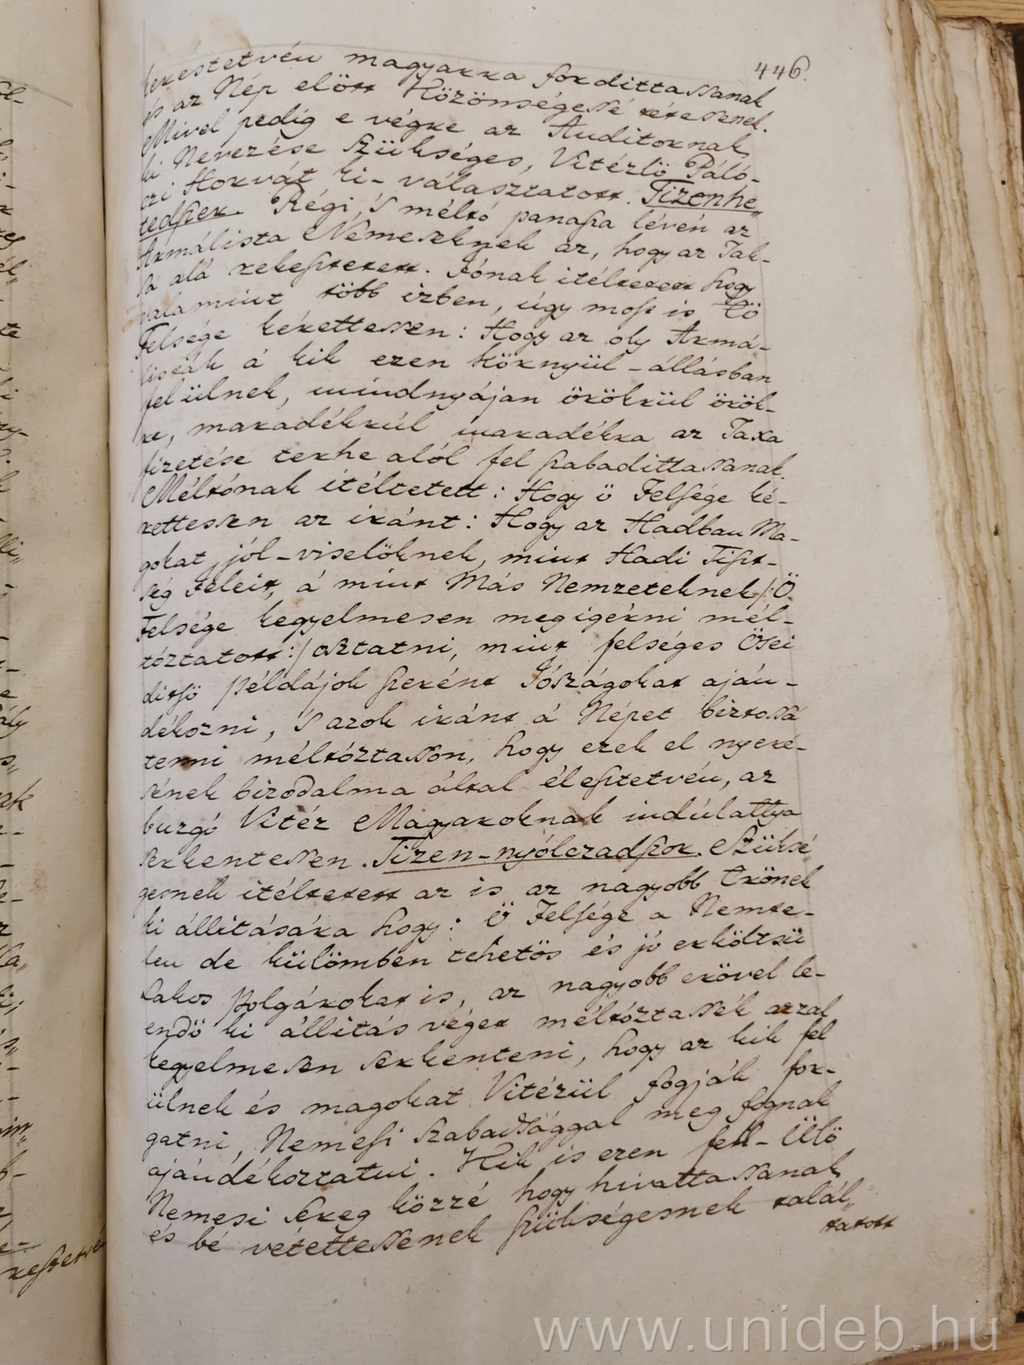 446.
kestetvén magyarra fordittassanak
és az Nép elött Közönségessé tétessenek.
Mivel pedig e végre az Auditornak
ki Nevezése szükséges, Vitézlö Páló-
czi Horvát ki-választatott. Tizenhe„
tedszer. Régi, 's méltó panasza lévén az
Armálista Nemeseknek az, hogy az Tak-
sa alá rekesztetett. Jónak itéltetett hogy
valamint több izben, úgy most is Eö
Felsége kérettessen: Hogy az oly Arma-
listák á kik ezen környül-állásban
fel ülnek, mindnyájan örökrül örök-
re, maradékrúl maradékra az Taxa
fizetése terhe alól fel szabadittassanak.
Méltónak itéltetett: Hogy ö Felsége ké-
rettessen az iránt: Hogy az Hadban Ma-
gokat jól-viselöknek, mint Hadi Tiszt-
ség Feleit, á mint Más Nemzeteknek /:Ö
Felsége kegyelmesen megigérni mél-
tóztatott:/ osztatni, mint felséges Ösei
ditsö példájok szerént Jószágokat aján-
dékozni, 's azok iránt á Népet bizto­ssá
tenni méltóztasson, hogy ezek el nyeré-
sének bizodalma által élesztetvén, az
buzgó Vitéz Magyaroknak indúlattya
serkentessen. Tizen-nyólczadszor. Szüksé
gesnek itéltetett az is az nagyobb Erönek
ki állitására hogy: Ö Felsége a Nemte-
len de külömben tehetös és jó erköltsü
Lakos polgárokat is, az nagyobb erövel le-
endö ki állitás végett méltóztassék azzal
kegyelmesen serkenteni, hogy az kik fel
ülnek és magokat Vitézül fogják for-
gatni, Nemesi szabadtággal meg fognak
ajándékoztatni. Kik is ezen fell-Ülö
Nemesi sereg közzé hogy hivattassanak
és bé vetettessenek szükségesnek talál„
tatott
www.unideb.hu